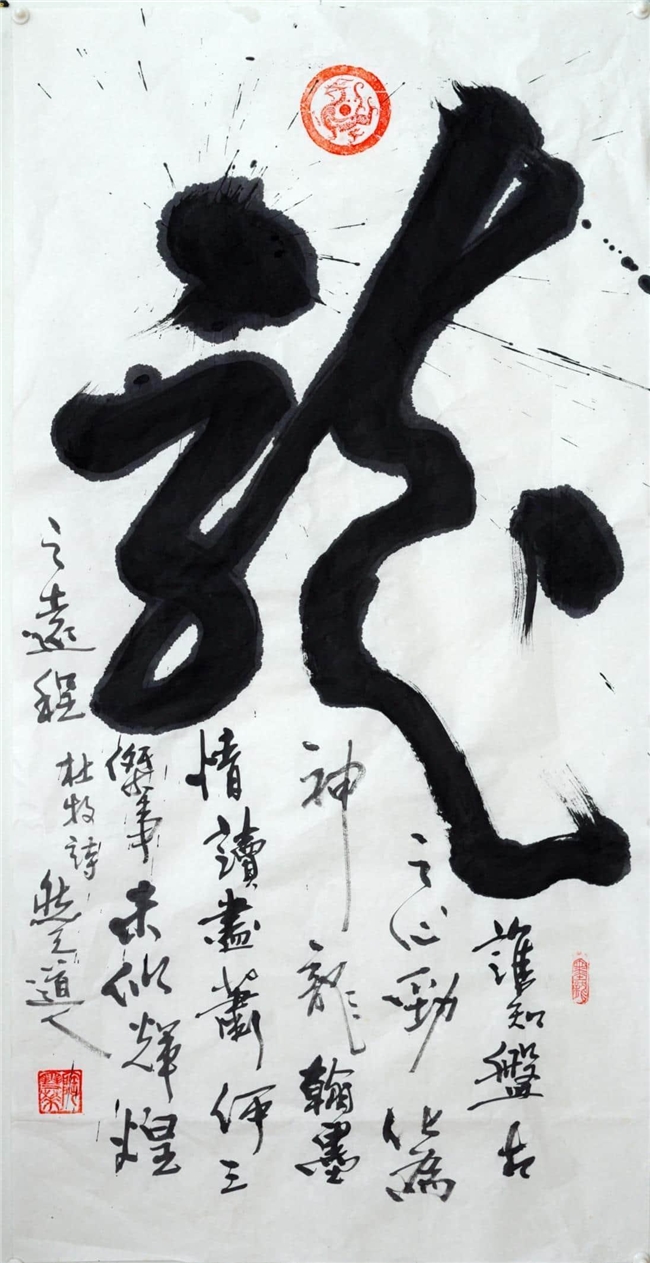 龍
誰知盤古
之心勁化為
神龍翰墨
情讀盡蕭何三
傑事未似輝煌
之遠程
杜牧詩
道人